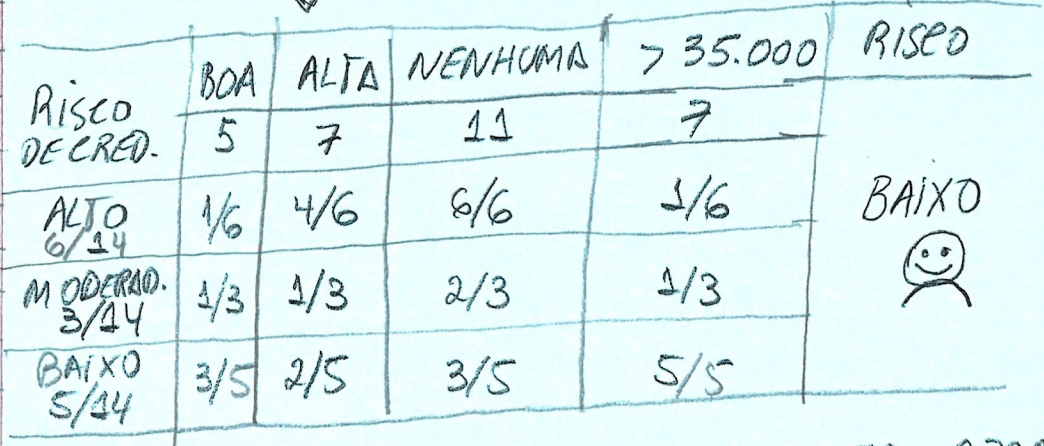 RISCO DE CRED. BOA ALTA NENHUMA > 35.000 RISCO
5 7 11 7
ALTO 6/14 1/6 4/6 6/6 1/6 BAIXO
MODERAD. 3/14 1/3 1/3 2/3 1/3
BAIXO 5/14 3/5 2/5 3/5 5/5